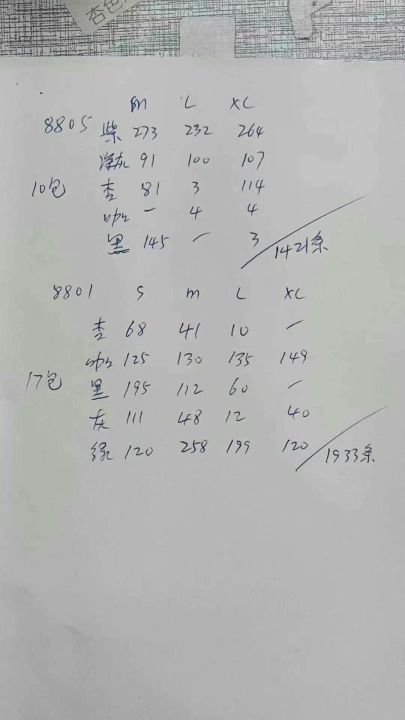 杏色
M L XL
8805 紫 273 232 264
深灰 91 100 107
10包 杏 81 3 114
咖 一 4 4
黑 145 一 3 / 1421条
8801 S M L XL
杏 68 41 10 一
咖 125 130 135 149
17包 黑 195 112 60 一
灰 111 48 12 40
绿 120 258 199 120 / 1933条